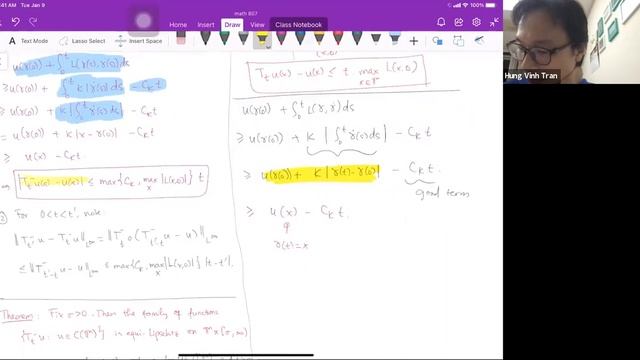 41 AM Tue Jan 9
math 807
Home
Insert
Draw
View
Class Notebook
Text Mode
Lasso Select
Insert Space
Hung Vinh Tran
u(γ(0)) + ∫₀ᵗ L(γ(s), γ̇(s)) ds
≥ u(γ(0)) + ∫₀ᵗ K|γ̇(s)| ds - C_K t
≥ u(γ(0)) + K|∫₀ᵗ γ̇(s) ds| - C_K t
= u(γ(0)) + K|x - γ(0)| - C_K t
≥ u(x) - C_K t
|T_t⁻u(x) - u(x)| ≤ max{C_K, max_x |L(x,0)|} t
② For 0<t<t', note:
‖T_t⁻u - T_t'⁻u‖_L∞ = ‖T_t⁻∘(T_t'-t⁻u - u)‖_L∞
≤ ‖T_t'-t⁻u - u‖_L∞ ≤ max{C_K, max_x |L(x,0)|} |t-t'|.
Theorem: Fix τ>0. Then the family of functions
{T_t⁻u : u ∈ C(𝕋ⁿ)} is equi-Lipschitz on 𝕋ⁿ × [τ, ∞)
T_t⁻u(x) - u(x) ≤ t max_{x∈𝕋ⁿ} L(x,0)
u(γ(0)) + ∫₀ᵗ L(γ, γ̇) ds
≥ u(γ(0)) + K |∫₀ᵗ γ̇(s) ds| - C_K t
≥ u(γ(0)) + K |γ(t) - γ(0)| - C_K t.
good term
≥ u(x) - C_K t.
γ(t) = x